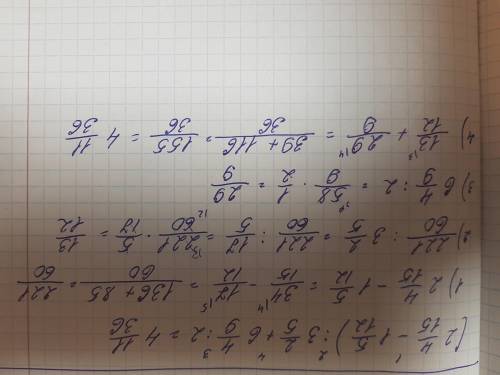 (2 4/15 - 1 5/12) : 3 2/5 + 6 4/9 : 2 = 4 11/36
1) 2 4/15 - 1 5/12 = 34/15 - 17/12 = 136+85/60 = 221/60
2) 221/60 : 3 2/5 = 221/60 : 17/5 = 221/60 · 5/17 = 13/12
3) 6 4/9 : 2 = 58/9 · 1/2 = 29/9
4) 13/12 + 29/9 = 39+116/36 = 155/36 = 4 11/36